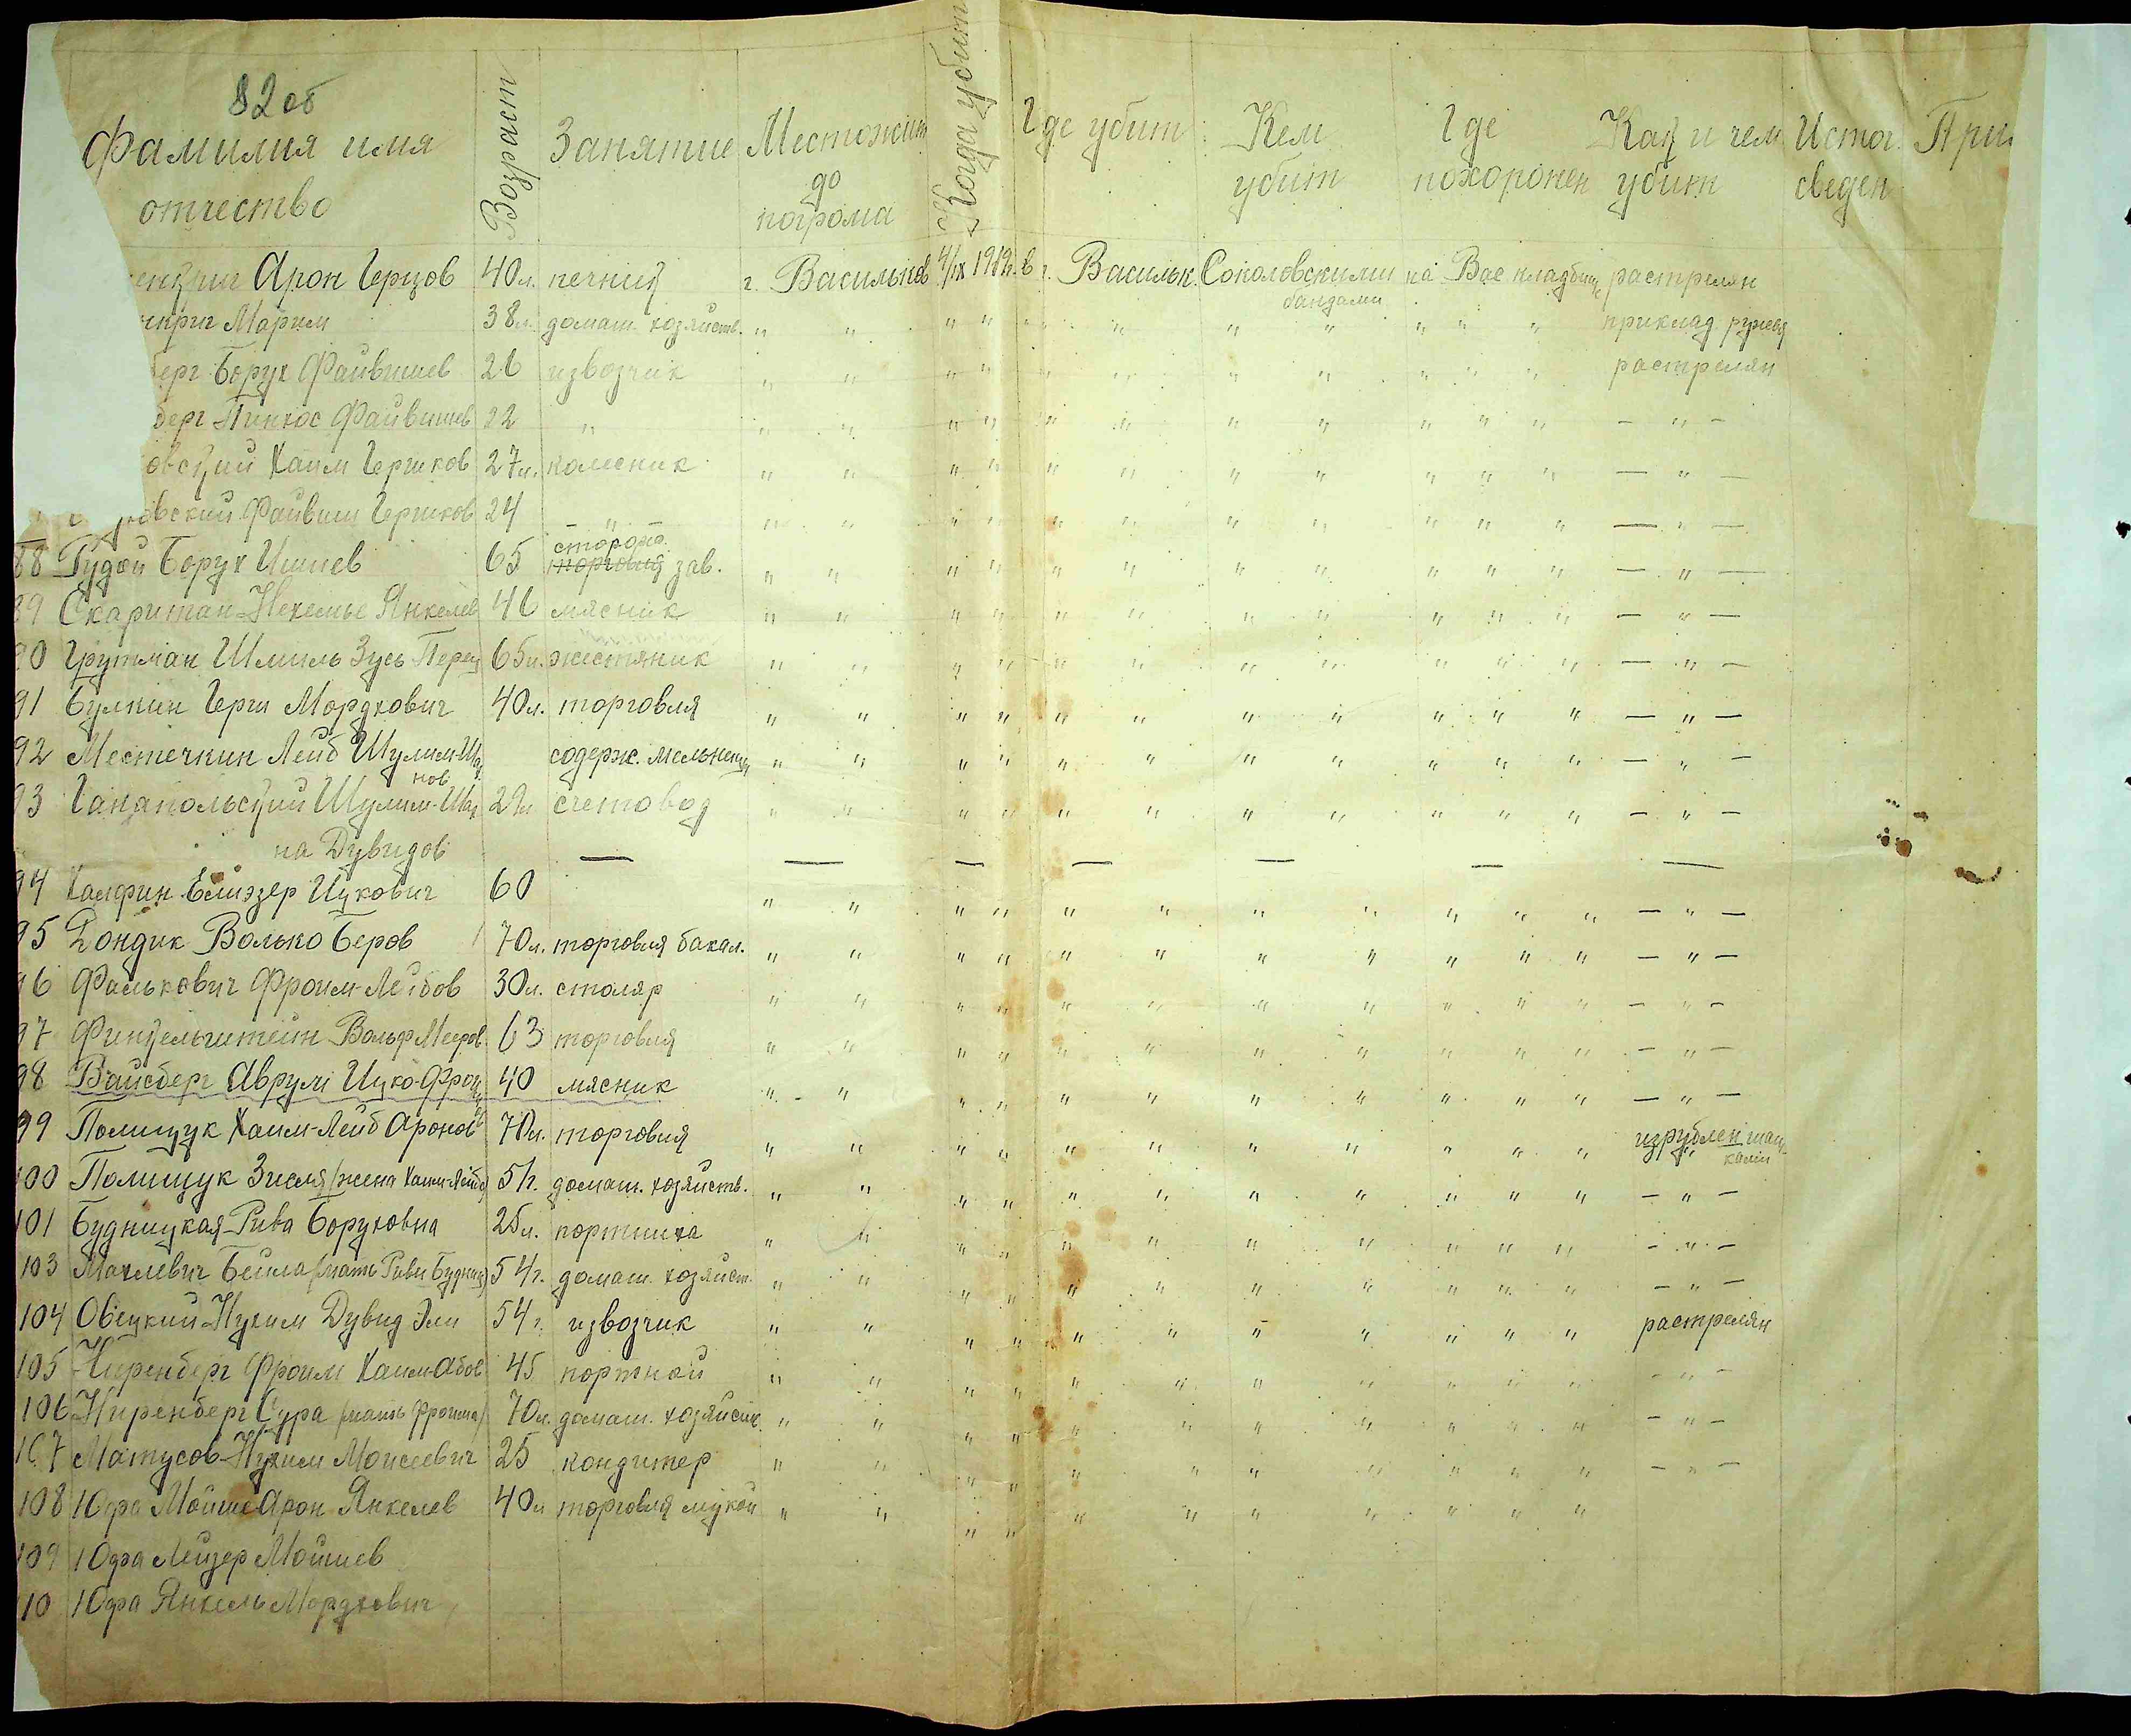 82 об
Фамилия имя отчество Возраст Занятие Местожит до погрома Когда убит Где убит Кем убит Где похоронен Как и чем убит Источ. сведен При
Арон Герцов 40 л. печник г. Васильков 4/IX 1919 г. в г. Васильк. Соколовскими бандами на Вас кладбищ растрелян
Марим 38 л. домаш. хозяйств. " " " " " " " " " " " приклад. ружья
берг Борух Файвишев 26 извозчик " " " " " " " " " " " растрелян
берг Пинхос Файвишев 22 " " " " " " " " " " " " — " —
овский Хаим Гершков 27 л. колесник " " " " " " " " " " " — " —
овский Файвиш Гершков 24 — " — " " " " " " " " " " " — " —
88 Гудой Борух Ишиев 65 сторож зав. " " " " " " " " " " " — " —
89 Скаришан Нехемье Янкелев 46 мясник " " " " " " " " " " " — " —
90 Грутман Шмиль Зусь Перец 65 л. жестяник " " " " " " " " " " " — " —
91 Булкин Герш Мордкович 40 л. торговля " " " " " " " " " " " — " —
92 Местечкин Лейб Шулим-Ша содерж. мельнецы " " " " " " " " " " " — " —
нов
93 Ганапольский Шулим-Ша 29 л счетовод " " " " " " " " " " " — " —
на Дувидов — — — — — — —
94 Халфин Елиэзер Ицкович 60 " " " " " " " " " " " — " —
95 Дондик Волько Беров 70 л. торговля бакал. " " " " " " " " " " " — " —
96 Фалькович Фроим-Лейбов 30 л. столяр " " " " " " " " " " " — " —
97 Финкельштейн Вольф Мееров 63 торговля " " " " " " " " " " " — " —
98 Вайсберг Аврум Ицко-Фрои 40 мясник " " " " " " " " " " " — " —
99 Полищук Хаим-Лейб Аронов 70 л. торговля " " " " " " " " " " " изрублен шаш
ками
100 Полищук Зисля (жена Хаим-Лейба) 51 г. домаш. хозяйств. " " " " " " " " " " " — " —
101 Будницкая Рива Боруховна 25 л. портниха " " " " " " " " " " " — " —
103 Махлевич Бейла (мать Ривы Будниц) 54 г. домаш. хозяйст. " " " " " " " " " " " — " —
104 Овецкий Нухим Дувид Эли 54 г. извозчик " " " " " " " " " " " растрелян
105 Ниренберг Фроим Хаим-Абов 45 портной " " " " " " " " " " " — " —
106 Ниренберг Сура (мать Фроима) 70 л. домаш. хозяйств " " " " " " " " " " " — " —
107 Матусов Нухим Моисеевич 25 кондитер " " " " " " " " " " " — " —
108 Юфа Мойше Арон Янкелев 40 л торговля мукой " " " " " " " " " " "
109 Юфа Лейзер Мойшев
10 Юфа Янкель Мордкович